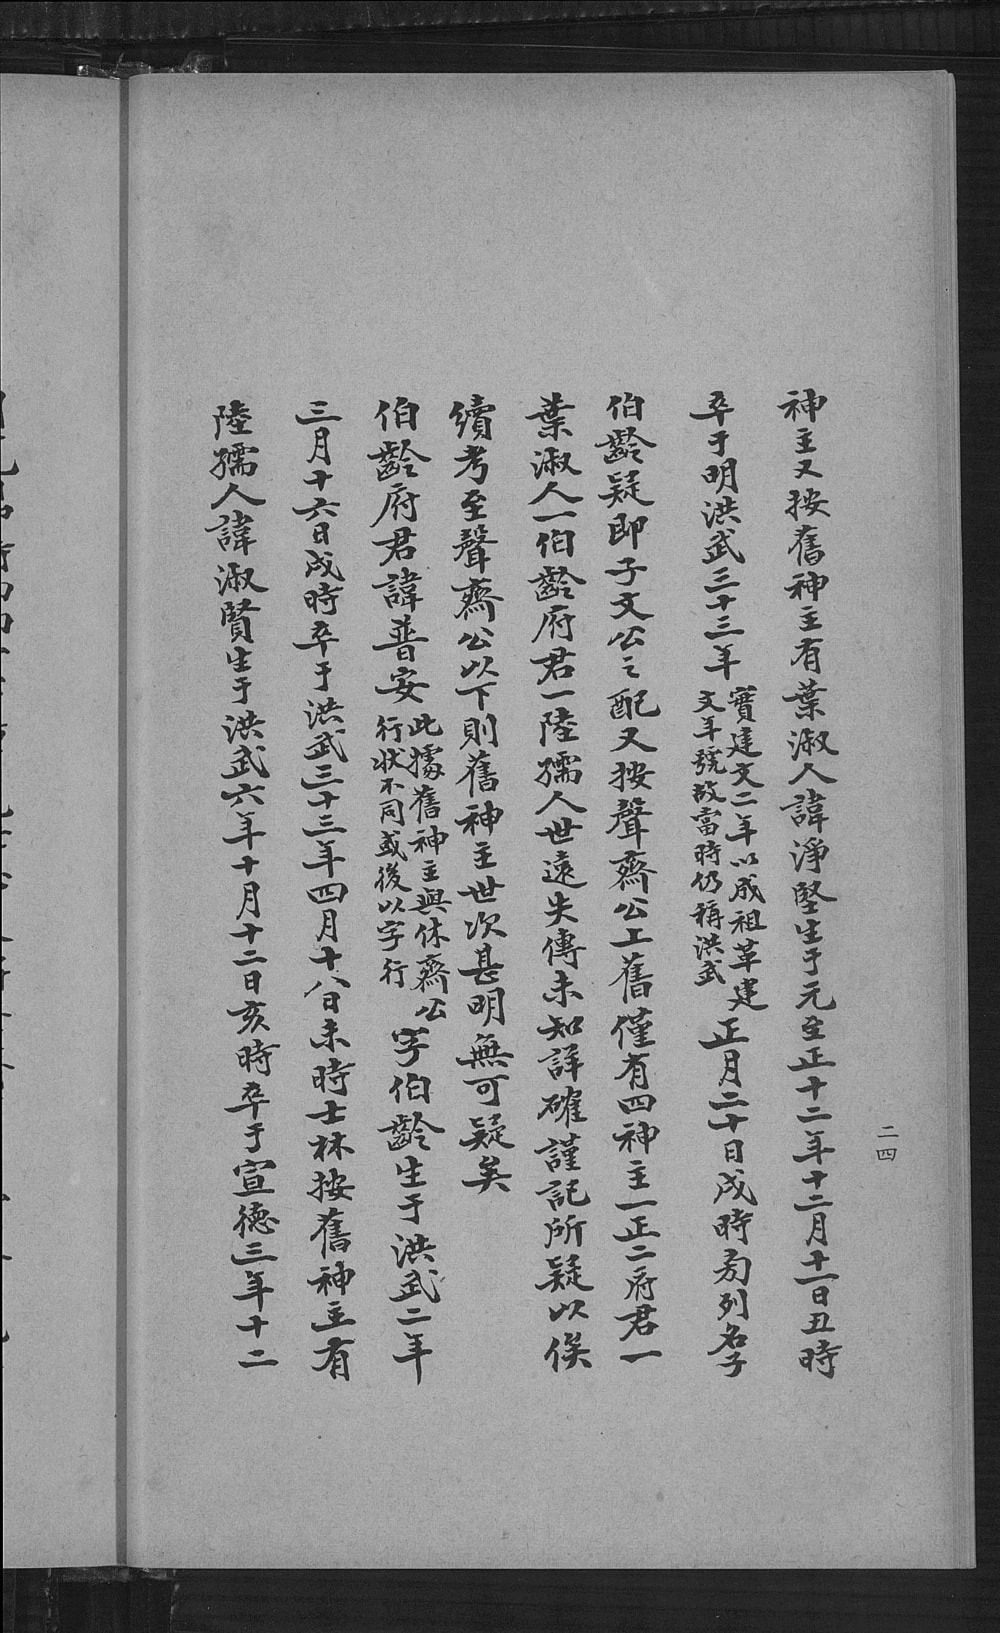 神主又按舊神主有葉淑人諱淨堅生于元至正十二年十二月十一日丑時
卒于明洪武三十三年
實建文二年以成祖革建
文年號故當時仍稱洪武
正月二十日戌時旁列名子
伯齡疑即子文公之配又按聲齋公上舊僅有四神主一正二府君一
葉淑人一伯齡府君一陸孺人世遠失傳未知詳確謹記所疑以俟
續考至聲齋公以下則舊神主世次甚明無可疑矣
伯齡府君諱普安
此據舊神主與休齋公
行狀不同或後以字行
字伯齡生于洪武二年
三月十六日戌時卒于洪武三十三年四月十八日未時士林按舊神主有
陸孺人諱淑賢生于洪武六年十月十二日亥時卒于宣德三年十二
二四